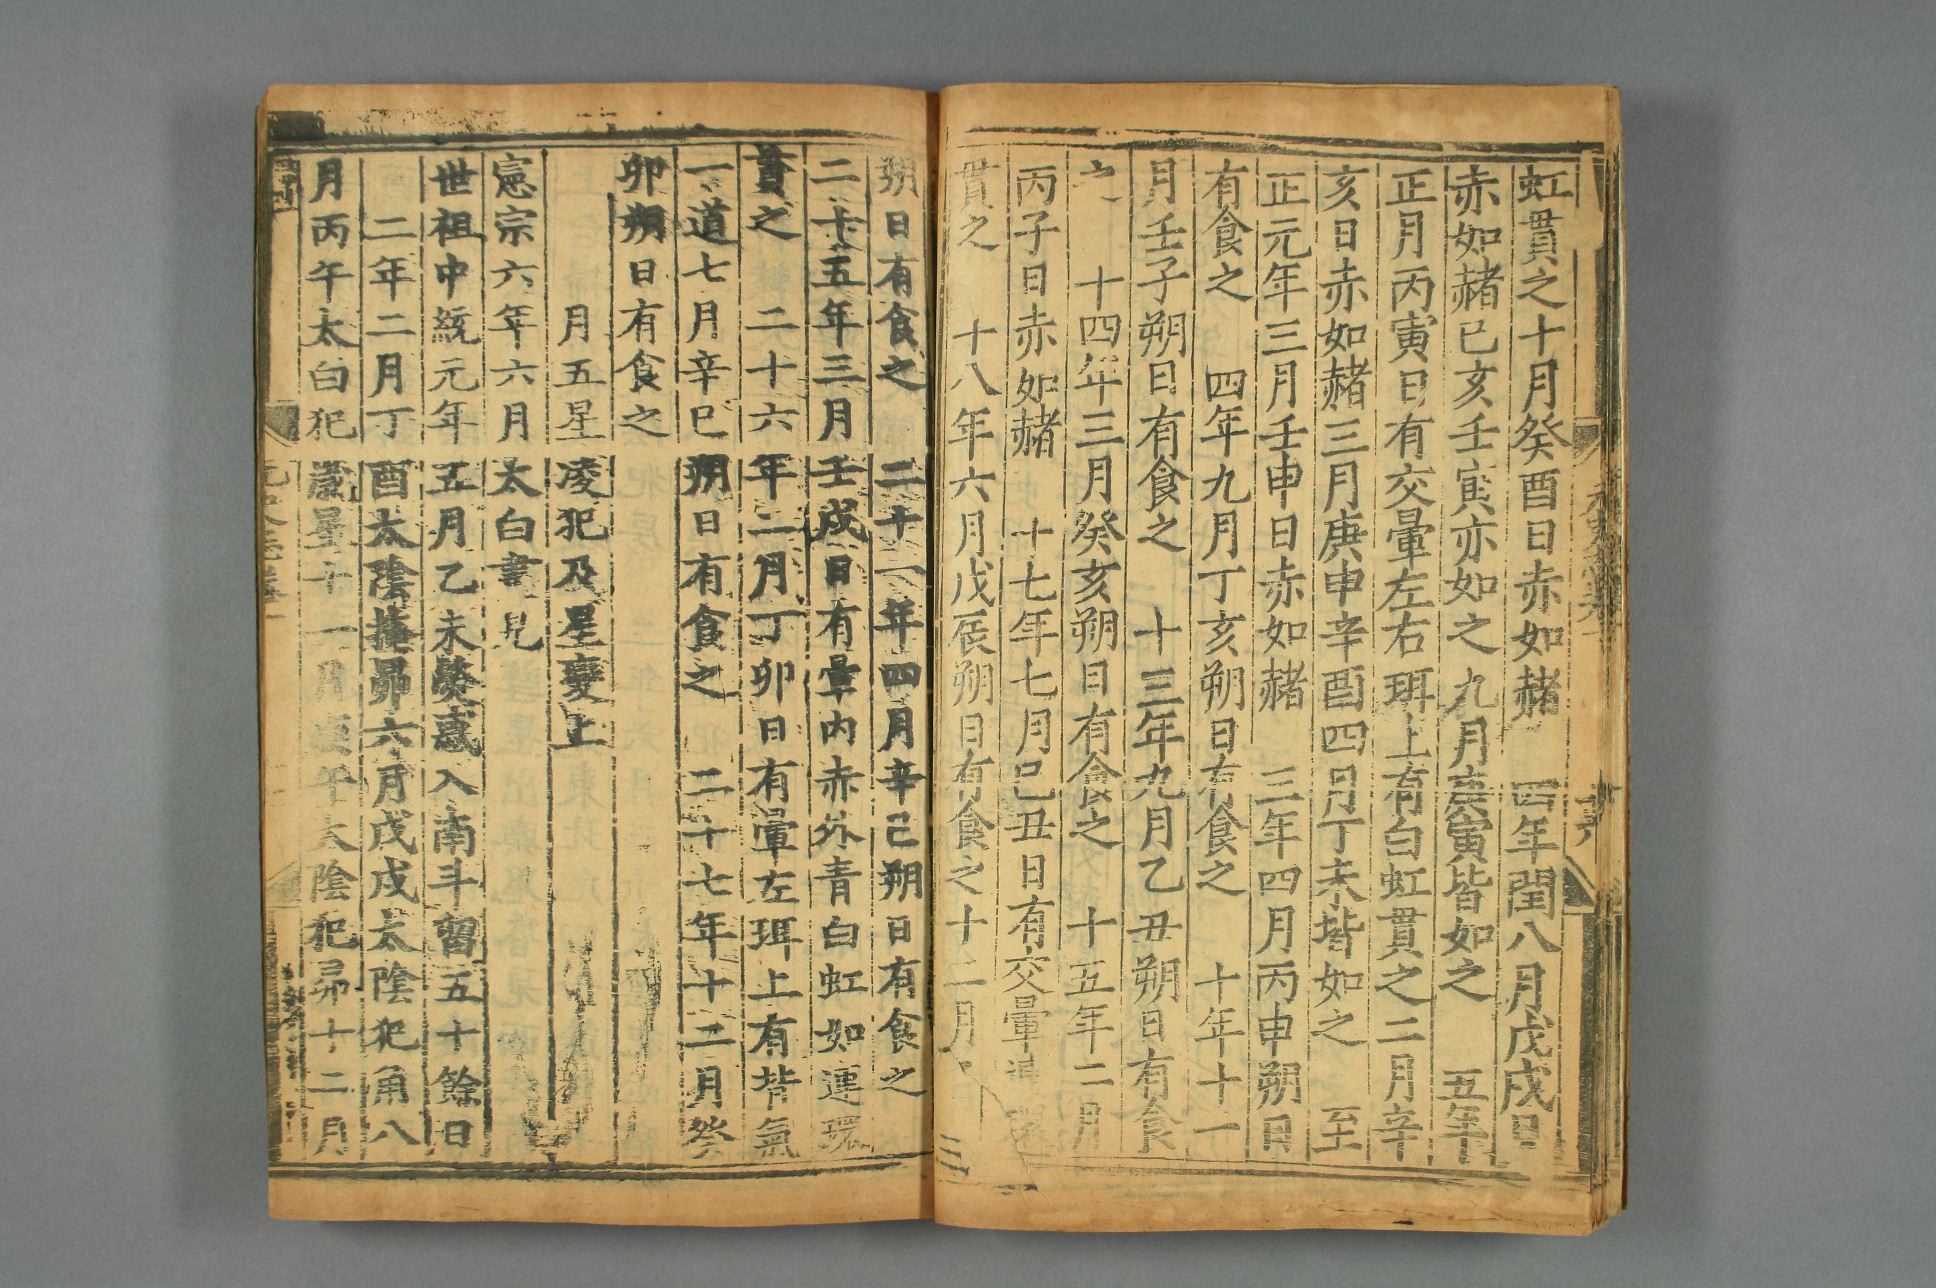 虹貫之十月癸酉日赤如赭　四年閏八月戊戌日
赤如赭己亥壬寅亦如之　九月庚寅皆如之　五年
正月丙寅日有交暈左右珥上有白虹貫之二月辛
亥日赤如赭三月庚申辛酉四月丁未皆如之　至
正元年三月壬申日赤如赭　三年四月丙申朔日
有食之　四年九月丁亥朔日有食之　十年十一
月壬子朔日有食之　十三年九月乙丑朔日有食
之　十四年三月癸亥朔日有食之　十五年二月
丙子日赤如赭　十七年七月己丑日有交暈連
貫之　十八年六月戊辰朔日有食之十二月
朔日有食之　二十一年四月辛巳朔日有食之
二十五年三月壬戌日有暈內赤外青白虹如連環
貫之　二十六年二月丁卯日有暈左珥上有背氣
一道七月辛巳朔日有食之　二十七年十二月癸
卯朔日有食之
月五星凌犯及星變上
憲宗六年六月太白晝見
世祖中統元年五月乙未熒惑入南斗留五十餘日
二年二月丁酉太陰掩昴六月戊戌太陰犯角八
月丙午太白犯歲星十一月庚午太陰犯昴十二月